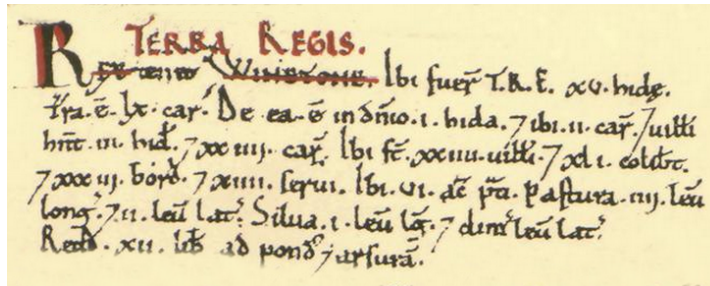 TERRA REGIS.
REX tenet WINETONE. Ibi fuer̃ T.R.E. xv. hidę.
Tr̃a. ē. lx. car̃. De ea. ē in dñio. i. hida. ⁊ ibi. ii. car̃. ⁊ uiłłi
hñt. iii. hid̃. ⁊ xx iiii. car̃. Ibi st̃. xxiiii. uiłłi. ⁊ xl i. colib̃t.
⁊ xxx iii. bord̃. ⁊ xiiii. serui. Ibi. vi. ac̃ p̃ti. Pastura. iiii. leũ
long̃. ⁊ ii. leũ lat̃. Silua. i. leũ lg̃. ⁊ dim̃ leũ lat̃.
Redd̃. xii. lib̃ ad pond̃ ⁊ arsurā.